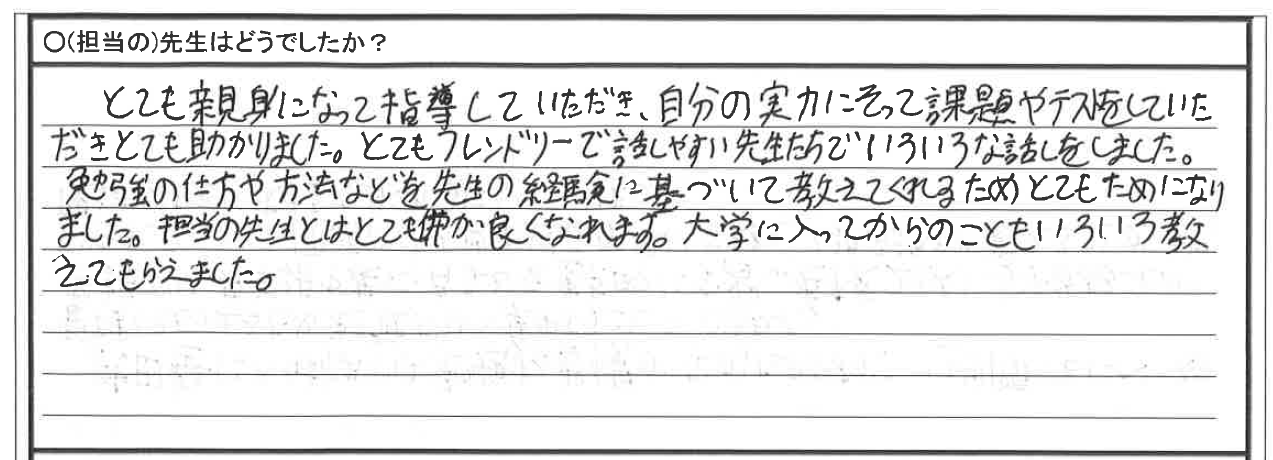 ○(担当の)先生はどうでしたか？
とても親身になって指導していただき、自分の実力にそって課題やテストをしていた
だきとても助かりました。とてもフレンドリーで話しやすい先生たちでいろいろな話しをしました。
勉強の仕方や方法などを先生の経験に基づいて教えてくれるためとてもためになり
ました。担当の先生とはとても仲が良くなれます。大学に入ってからのこともいろいろ教
えてもらえました。